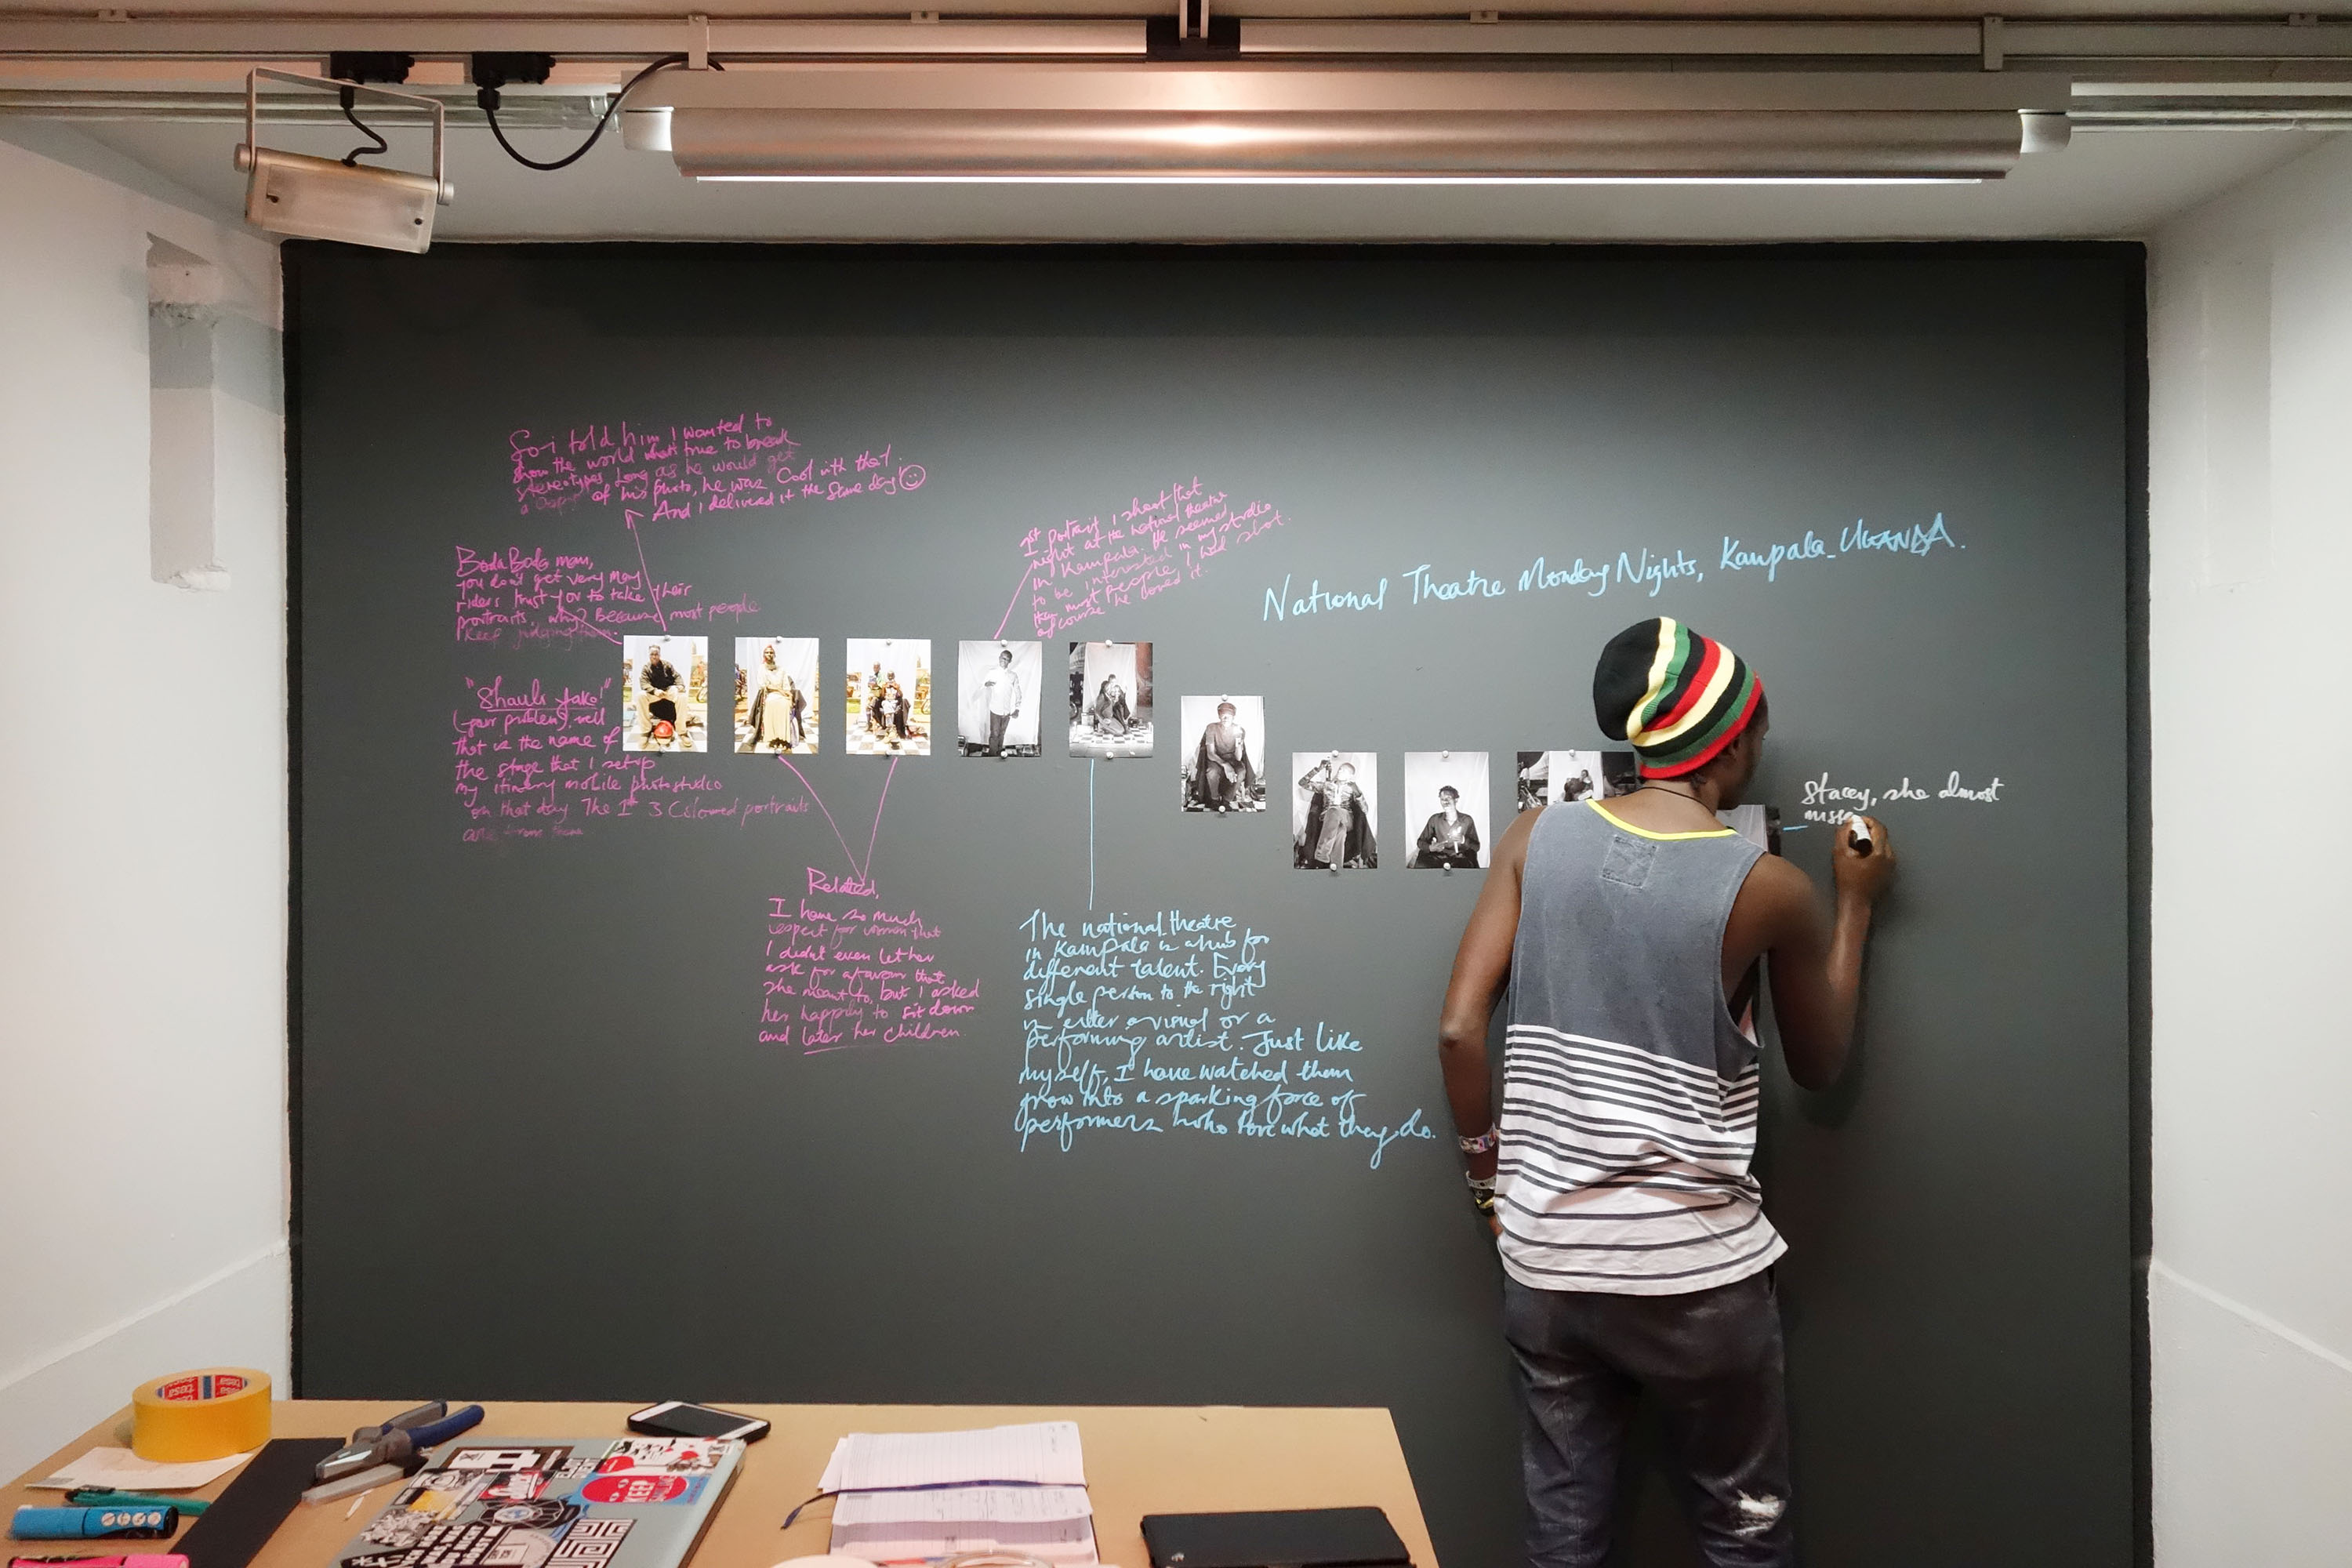 So i told him I wanted to
show the world what's true to break
stereotypes long as he would get
a copy of his photo, he was Cool with that.
And i delivered it the same day!
Boda Boda man,
you don't get very many
riders trust you to take their
portraits, why? Because most people
keep judging them.
"Shauli Yako!"
(-your problem), well
that is the name of
the stage that I setup
my itinery mobile photostudio
on that day The 1st 3 Coloured portraits
are from there
Related,
I have so much
respect for women that
I didn't even let her
ask for a favour that
she meant to, but I asked
her happily to sit down
and later her children.
1st portrait I shoot that
night at the national theatre
in Kampala. He seemed
to be interested in my studio
than most people I had shot.
of course he loved it.
National Theatre Monday Nights, Kampala_UGANDA.
The national theatre
in Kampala is a hub for
different talent. Every
single person to the right
is either a visual or a
performing artist. Just like
myself, I have watched them
grow into a sparking force of
performers who love what they do.
Stacey, she almost
misse
tesa
KEEP